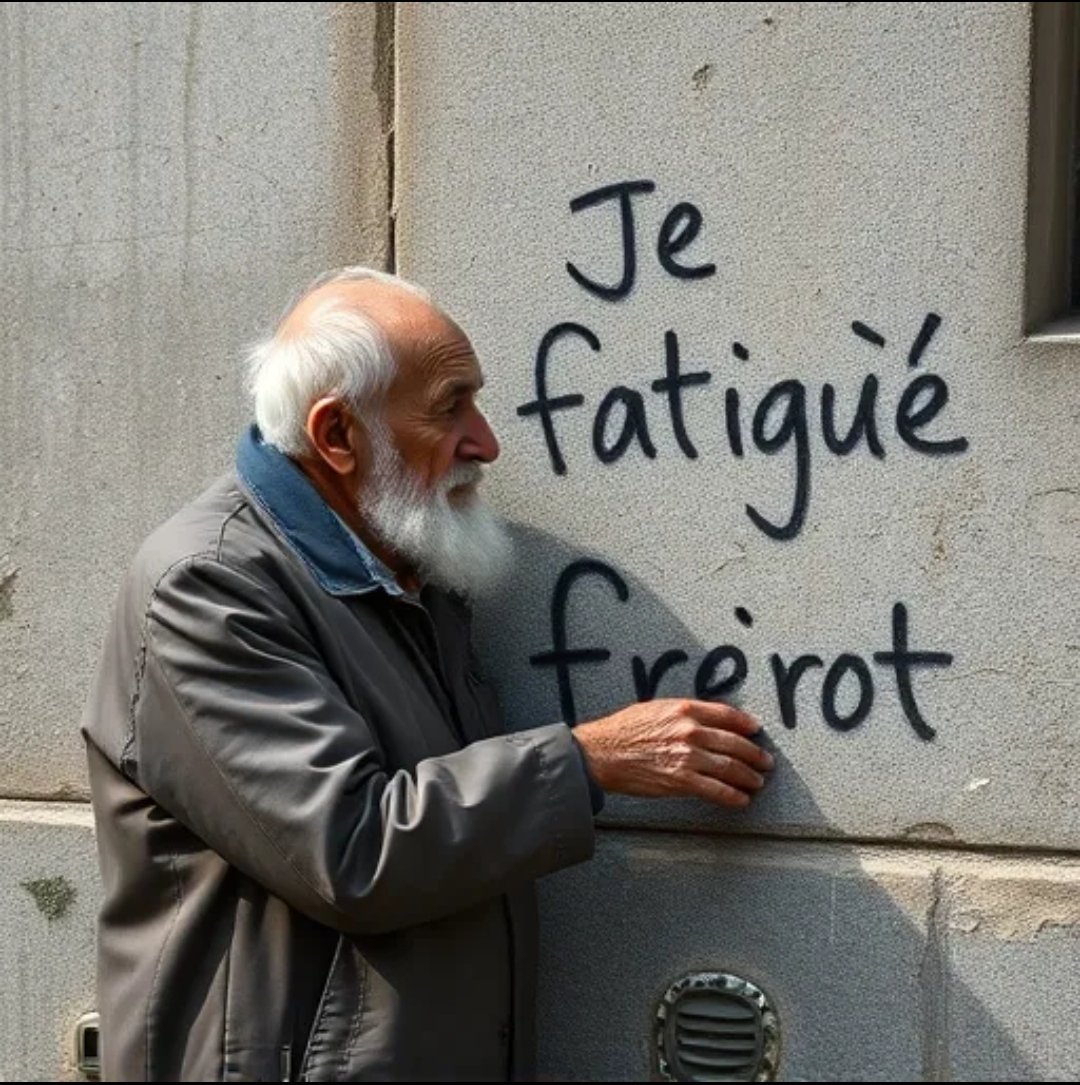 Je
fatigùé
frėrot